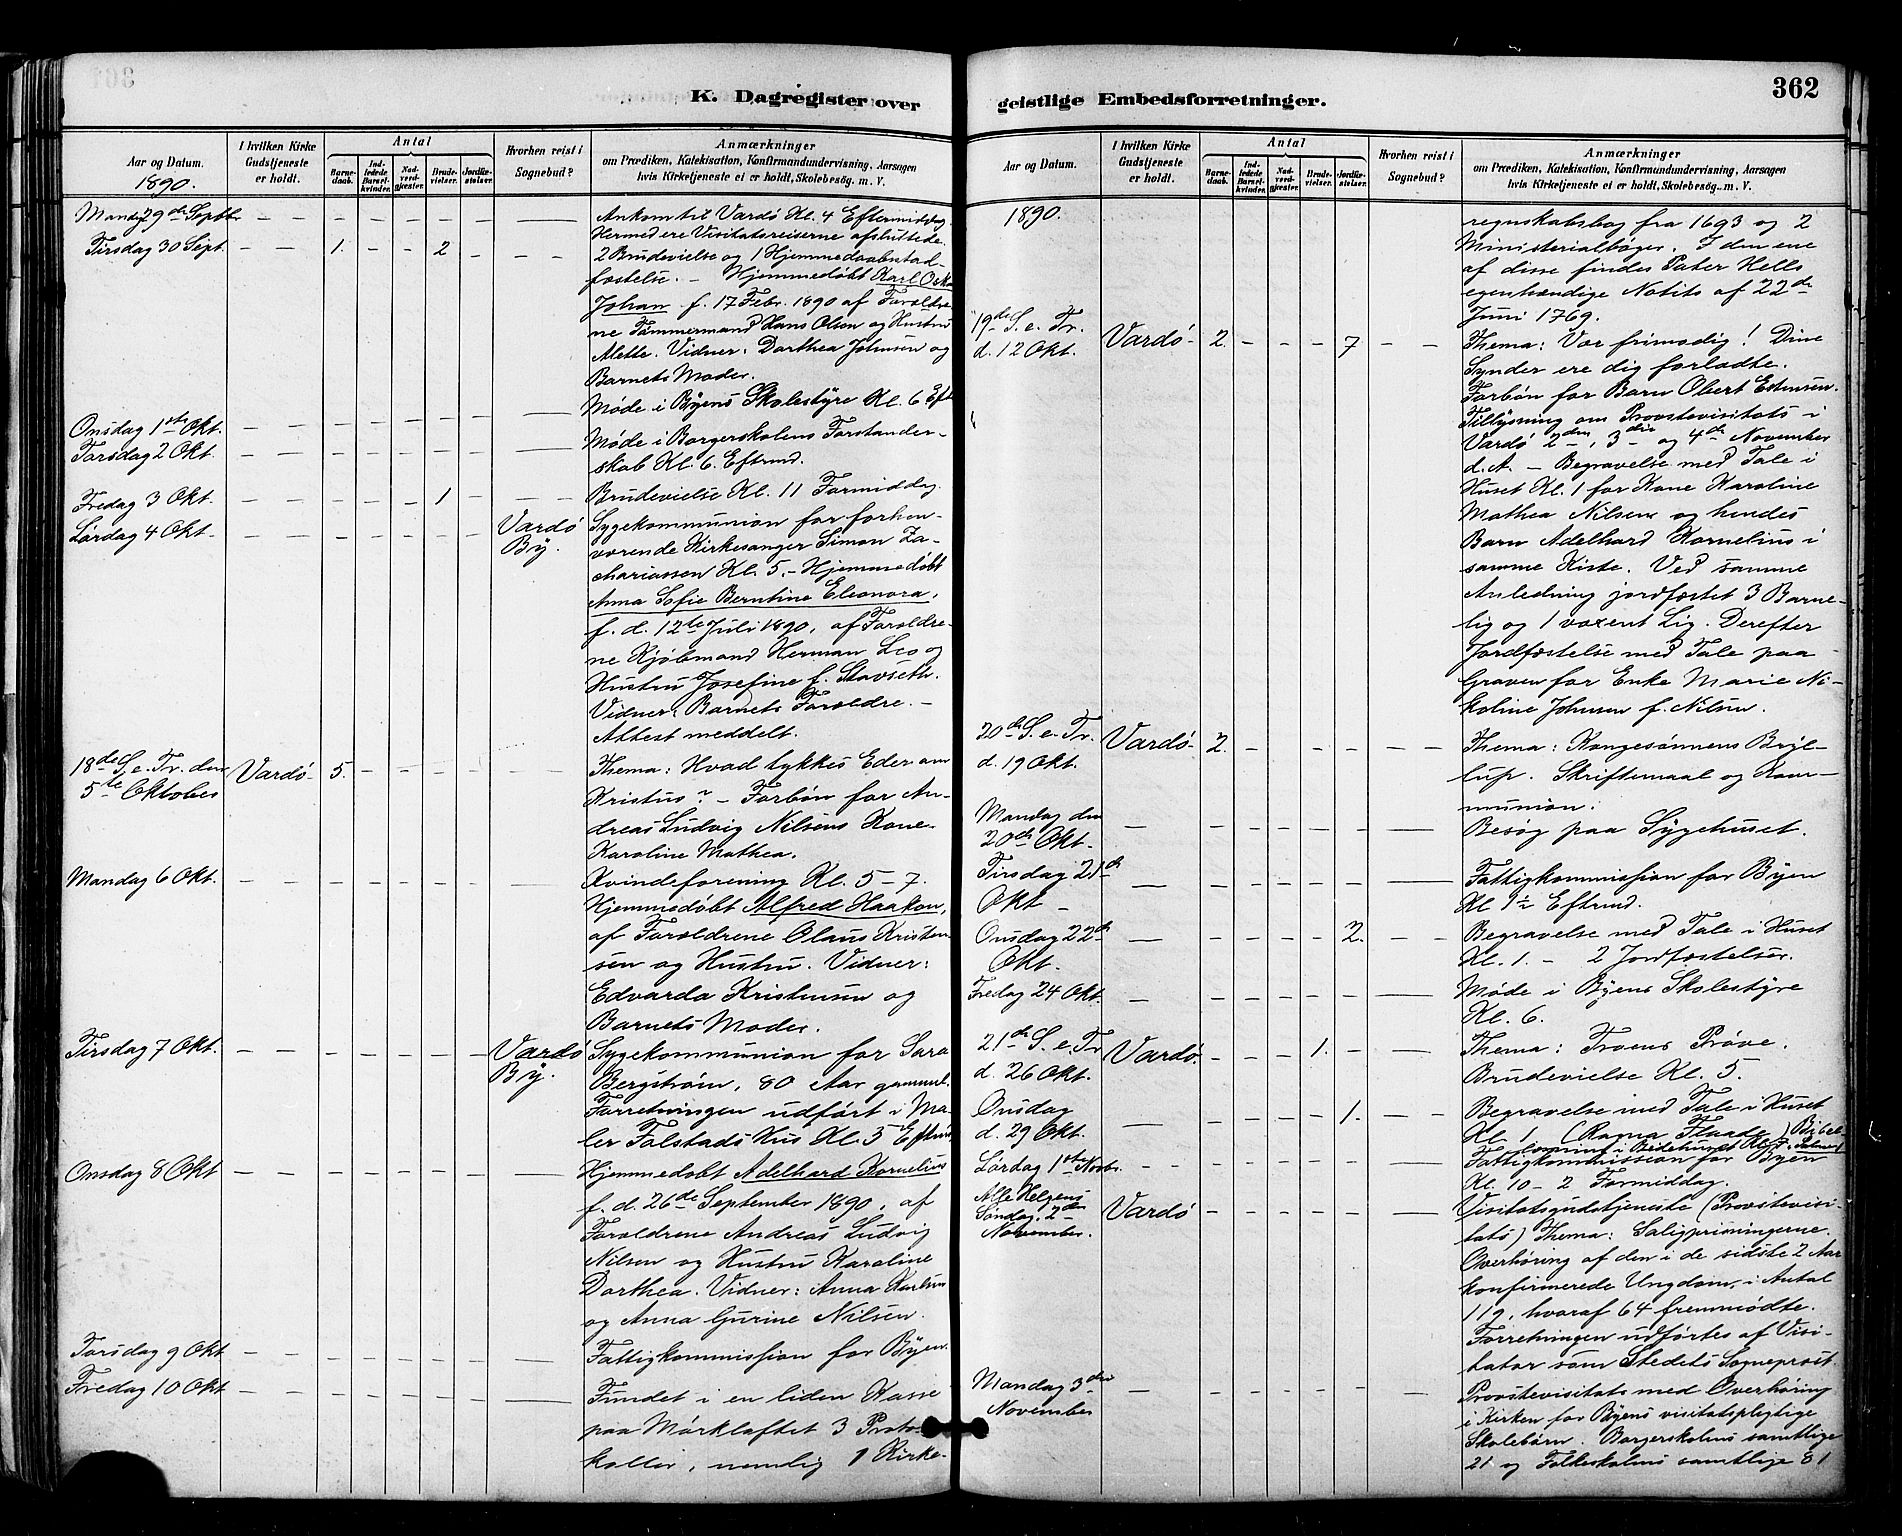 K. Dagregister over
geistlige Embedsforretninger.
362
Aar og Datum.
1890.
I hvilken Kirke
Gudstjeneste
er holdt.
Antal
Barne-
daab.
Ind-
ledede
Barsel-
kvinder.
Nad-
verd-
gjester.
Brude-
vielser.
Jordfæ-
stelser.
Hvorhen reist i
Sognebud?
Anmærkninger
om Prædiken, Katekisation, Konfirmandundervisning, Aarsagen
hvis Kirketjeneste ei er holdt, Skolebesøg. m. V.
Mandag 29de Septbr. – – – – – – – – –
Ankom til Vardø Kl. 4 Eftermiddag
Hermed ere Visitatsreiserne afsluttede.
Tirsdag 30 Sept. – – 1. – – 2 – – – –
2 Brudevielse og 1 Hjemmedaabsstad-
fæstelse. – Hjemmedøbt Karl Oskar
Johan f. 17 Febr. 1890 af Forældre-
ne Tømmermand Hans Olsen og Hustru
Mette. Vidner: Dorthea Johnsen og
Barnets Moder.
Møde i Byens Skolestyre Kl. 6 Eft.
Onsdag 1ste Okt. – – – – – – – –
Møde i Borgerskolens Forstander-
Torsdag 2 Okt. – – – – – – – –
skab Kl. 6. Eftmd.
Fredag 3 Okt. – – – – – 1 – – –
Brudevielse Kl. 11 Formiddag.
Lørdag 4 Okt. – – – – – – – Vardø
By.
Sygekommunion for forhen-
værende Kirkesanger Simon Za-
chariassen Kl. 5. – Hjemmedøbt
Anna Sofie Berntine Eleonora,
f. d. 12te Juli 1890, af Forældre-
ne Kjøbmand Herman Leo og
Hustru Josefine f. Stavseth.
Vidner: Barnets Forældre. –
Attest meddelt.
18de S. e. Tr. den
5te Oktober
Vardø – 5. – – – – – –
Thema: Hvad tykkes Eder om
Kristus? – Forbøn for An-
dreas Ludvig Nilsens Kone
Karoline Mathea.
Mandag 6 Okt. – – – – – – – –
Kvindeforening Kl. 5–7.
Hjemmedøbt Alfred Haakon,
af Forældrene Olaus Kristen-
sen og Hustru. Vidner:
Edvarda Kristensen og
Barnets Moder.
Tirsdag 7 Okt. – – – – – – – Vardø
By.
Sygekommunion for Sara
Bergstrøm, 80 Aar gammel.
Forretningen udført i Ma-
ler Folstads Hus Kl. 5 Eftm
Onsdag 8 Okt – – – – – – – – –
Hjemmedøbt Adelhard Kornelius
f. d. 26de September 1890, af
Forældrene Andreas Ludvig
Nilsen og Hustru Karoline
Dorthea. Vidner: Anna Karlsen
og Anna Gurine Nilsen.
Torsdag 9 Okt – – – – – – – –
Fattigkommission for Byen.
Fredag 10 Okt – – – – – – – –
Fundet i en liden Kasse
paa Mørkloftet 3 Proto-
koller, nemlig 1 Kirke-
Aar og Datum.
I hvilken Kirke
Gudstjeneste
er holdt.
Antal
Barne-
daab.
Ind-
ledede
Barsel-
kvinder.
Nad-
verd-
gjester.
Brude-
vielser.
Jordfæ-
stelser.
Hvorhen reist i
Sognebud?
Anmærkninger
om Prædiken, Katekisation, Konfirmandundervisning, Aarsagen
hvis Kirketjeneste ei er holdt, Skolebesøg. m. V.
1890.
regnskabsbog fra 1693 og 2
Ministerialbøger. I den ene
af disse findes Pater Hells
egenhændige Notits af 22de
Juni 1769.
19de S. e. Tr.
d. 12 Okt.
Vardø – 2. – – – 7 – –
Thema: Vær frimodig! Dine
Synder ere dig forladte.
Forbøn for Barn Obert Estensen.
Tillysning om Provstevisitats i
Vardø 2den, 3die og 4de November
d. A. – Begravelse med Tale i
Huset Kl. 1 for Kone Karoline
Mathea Nilsen og hendes
Barn Adelhard Kornelius i
samme Kiste. Ved samme
Anledning jordfæstet 3 Barne-
lig og 1 voxent Lig. Derefter
Jordfæstelse med Tale paa
Graven for Enke Marie Ni-
koline Johnsen f. Nilsen.
20de S. e. Tr.
d. 19 Okt.
Vardø – 2. – – – – – –
Thema: Kongesønnens Bryl-
lup. Skriftemaal og Kom-
munion.
Mandag den
20de Okt.
– – – – – – –
Besøg paa Sygehuset.
Tirsdag 21de
Okt –
– – – – – – –
Fattigkommission for Byen
Kl 1½ Eftmd.
Onsdag 22de
Okt.
– – – – – 2. – –
Begravelse med Tale i Huset
Kl. 1. – 2 Jordfæstelser.
Fredag 24 Okt. – – – – – – –
Møde i Byens Skolestyre
Kl. 6.
21de S. e. Tr
d. 26 Okt.
Vardø. – – – 1. – –
Thema: Troens Prøve.
Brudevielse Kl. 5.
Onsdag
d. 29 Okt.
– – – – – 1. – –
Begravelse med Tale i Huset
Kl 1 (Ragna Flaade) Bibel-
læsning i Bedehuset Kl. 7
Lørdag 1ste Novbr. – – – – – – – –
Fattigkommission for Byen
Kl. 10 – 2 Formiddag.
Alle Helgens
Søndag. 2den
November.
Vardø – – – – – –
Visitatsgudstjeneste (Provstevisi-
tats) Thema: Saligprisningerne.
Overhøring af den i de sidste 2 Aar
konfirmerede Ungdom, i Antal
119, hvoraf 64 fremmødte.
Forretningen udførtes af Visi-
tator som Stedets Sogneprest.
Mandag 3die
November
– – – – – – –
Provstevisitats med Overhøring
i Kirken for Byens visitatspligtige
Skolebørn. Borgerskolens samtlige
21 og Folkeskolens samtlige 81